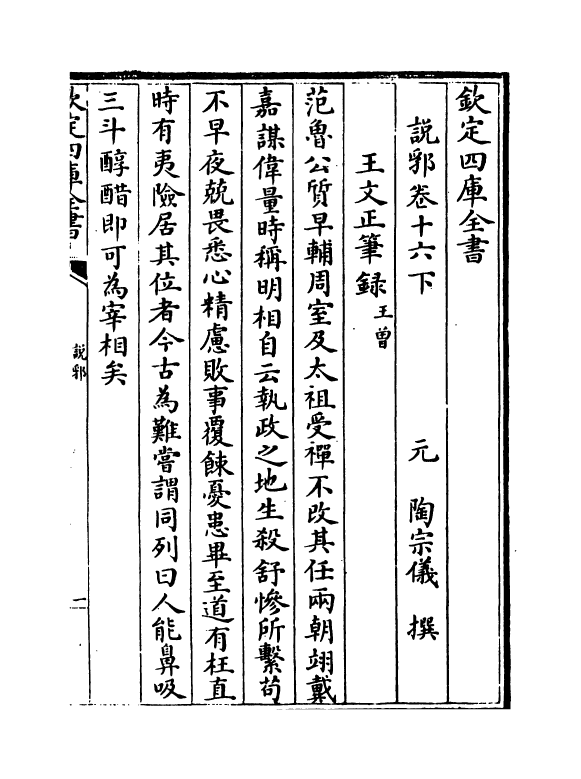 欽定四庫全書
說郛卷十六下
元 陶宗儀 撰
王文正筆録 王曾
范魯公質早輔周室及太祖受禪不改其任兩朝翊戴
嘉謀偉量時稱明相自云執政之地生殺舒慘所繫苟
不早夜兢畏悉心精慮敗事覆餗憂患畢至道有枉直
時有夷險居其位者今古為難嘗謂同列曰人能鼻吸
三斗醇醋即可為宰相矣
欽定四庫全書
說郛
一